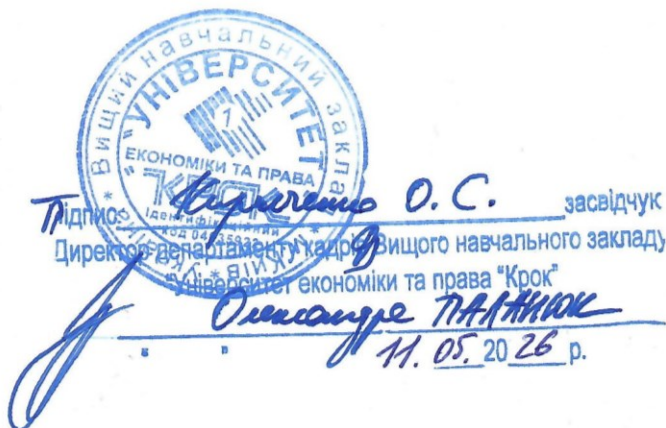 Вищий навчальний заклад
"УНІВЕРСИТЕТ
ЕКОНОМІКИ ТА ПРАВА
КРОК"
Ідентифікаційний
код
УКРАЇНА * КИЇВ
Підпис О. С. засвідчук
Директор департаменту кадрів Вищого навчального закладу
"Університет економіки та права "Крок"
Олександра ПАЛАНЮК
11. 05. 20 26 р.